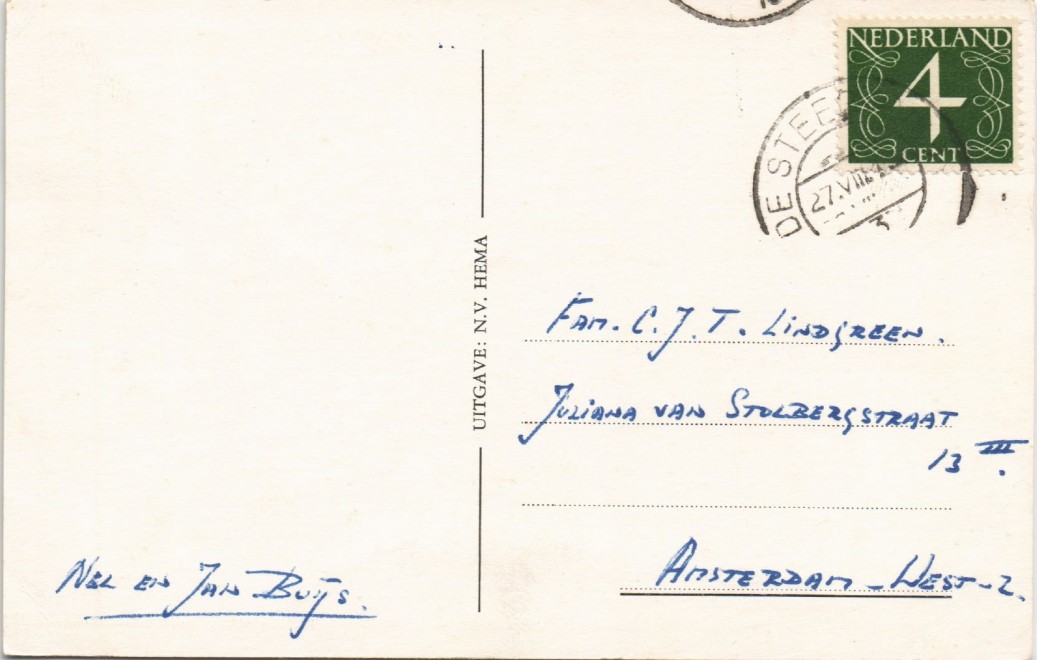 NEDERLAND
4
CENT
DE STEE
27.VIII
UITGAVE: N.V. HEMA
Fam. C.J.T. Lindgreen.
Juliana van Stolbergstraat
13 III.
Amsterdam-West-2.
Nel en Jan Buijs.